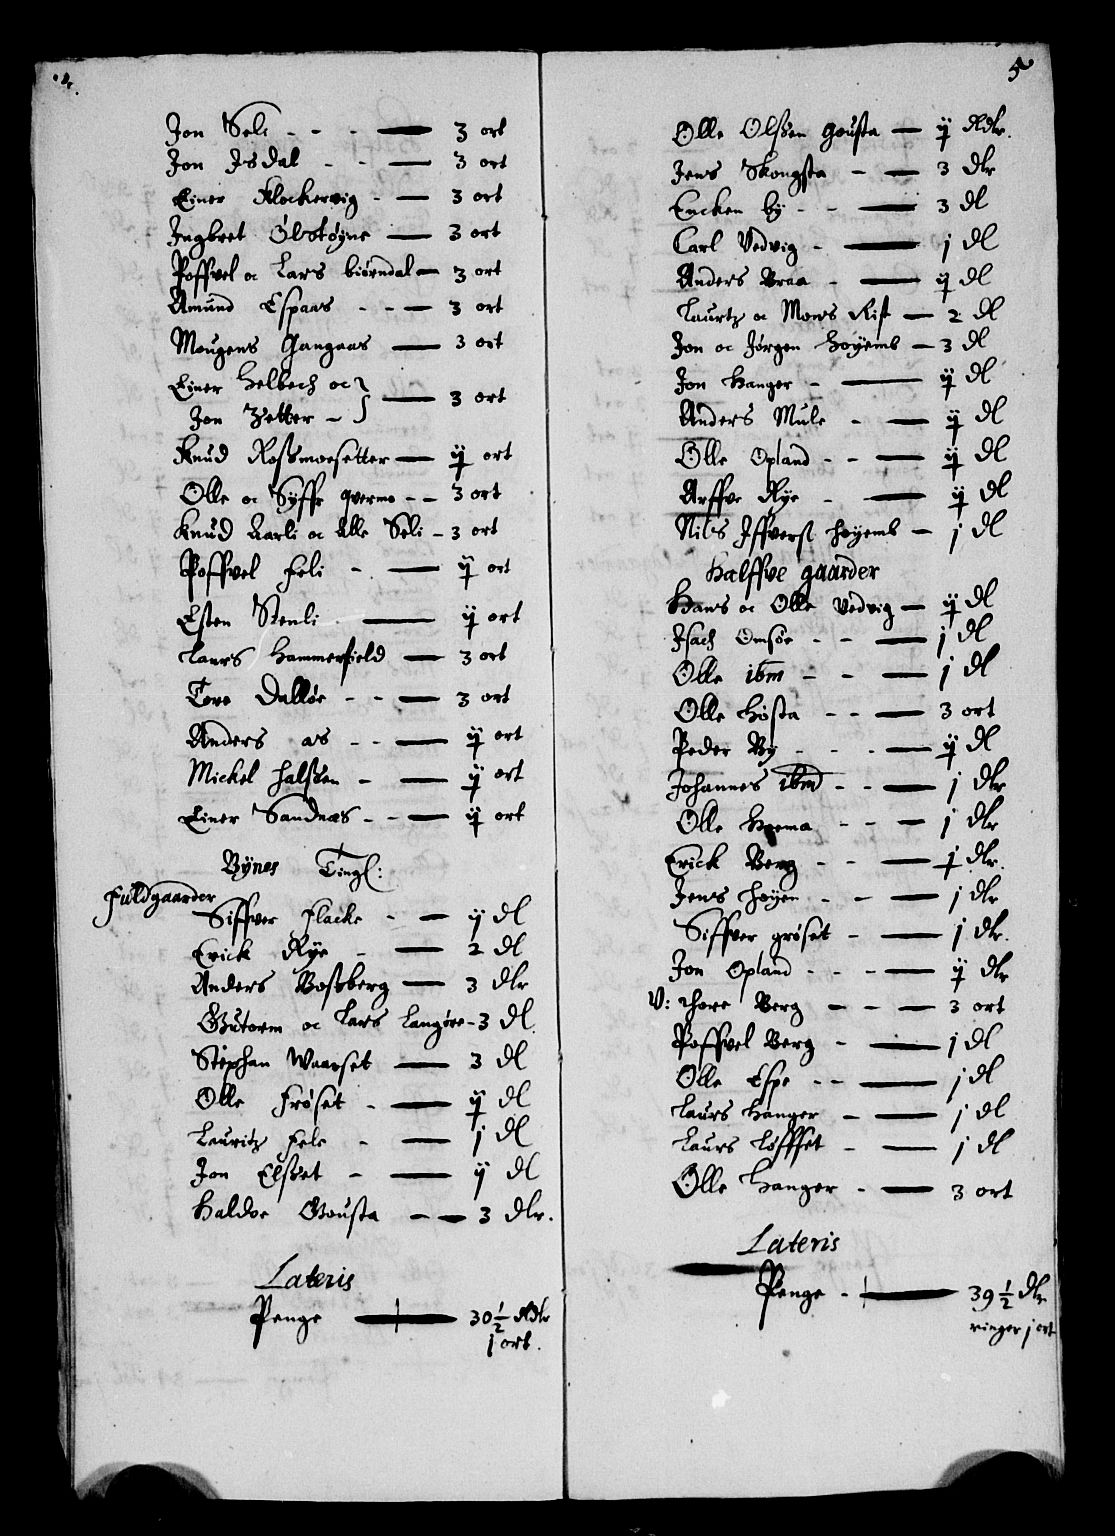 Jon Seli - - - 3 ort
Jon Isdal - - 3 ort
Einer Klockervig - 3 ort
Ingbret Ølstøyne 3 ort
Poffvel oc Lars biørndal 3 ort
Amund Espaas - - 3 ort
Mougens Gangaas 3 ort
Einer Helbech oc
Jon Zetter - 3 ort
Knud Rossmoesetter ij ort
Olle oc Syffr querme - - 3 ort
Knud Aarli oc Olle Seli - 3 ort
Poffvel Feli - ij ort
Esten Stenli ij ort
Laurs Hammerfield 3 ort
Tore Dalløe - - 3 ort
Anders as - - ij ort
Mickel Halssen - ij ort
Einer Sandnæs - - ij ort
Bynes Tingl:
Fuldgaarder
Siffver Flacke - ij dl
Erick Rye - 2 dl
Anders Bossberg 3 dlr
Gutorm oc Lars Langøre - 3 dl
Stephan Waarset 3 dl
Olle Frøset - ij dl
Lauritz Fele - j dl
Jon Elsset - ij dl
Haldor Gousta - 3 dlr.
Lateris
Penge 30 1/2 Rdlr
j ort.
5
Olle Olssen gousta ij Rdlr.
Jens Skongsta - 3 dlr
Encken by - - 3 dl
Carl Vedvig - j dl
Anders Braa - ij dl
Laurtz oc Mons Rist 2 dl
Jon oc Jørgen høyemb 3 dl
Jon Hanger - ij dl
Anders Mule - ij dl
Olle Opland - - ij dl
Arffve Rye - ij dl
Nils Iffversl høyemb - j dl
Halffve gaarder
Hans oc Olle Vedvig ij dl
Isach Omsøe - - j dl
Olle ibm - - j dl
Olle Høsta - - 3 ort
Peder By - - - ij dl
Johannes ibm - - j dlr
Olle - - j dlr
Erick Berg - - j dlr.
Jens Høyen - - j dlr
Siffver grøset - j dlr.
Jon Opland - - - ij dlr
V: Thore Berg - - 3 ort
Poffvel Berg - j dl
Olle Espe - - j dl
Laurs Hanger - j dl
Laurs Løffset - j dl
Olle Hanger - 3 ort
Lateris
Penge - 39 1/2 dlr
ringer j ort